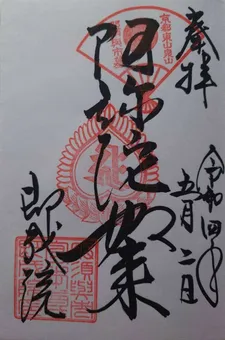 奉拝
令和四年
五月二日
京都東山泉山
阿弥陀如来
即成院